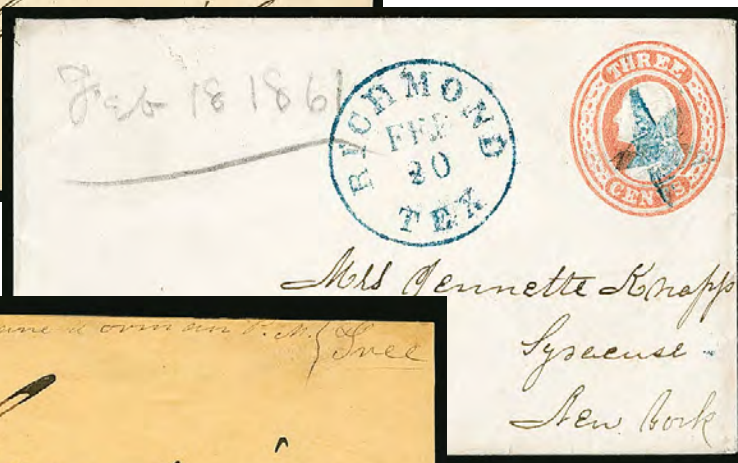 Feb 18 1861
RICHMOND
FEB
20
TEX
THREE
CENTS
Mrs Jennette Knapp
Syracuse
New York
P.M. } Free